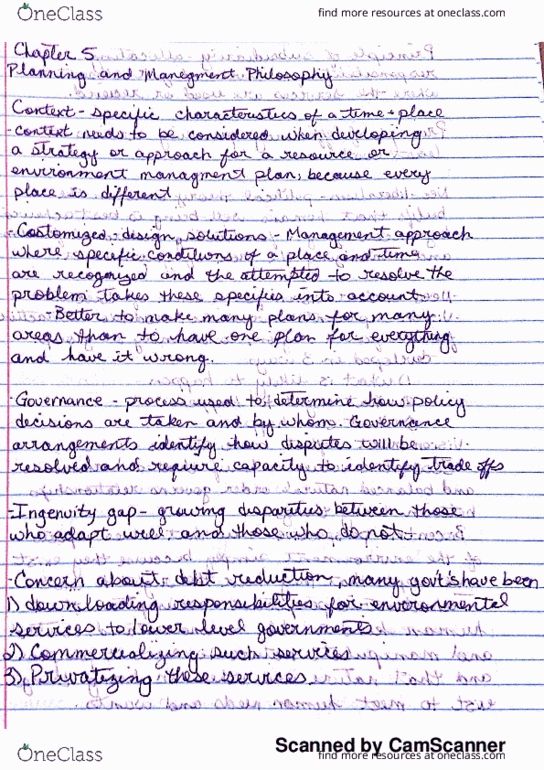 OneClass
find more resources at oneclass.com
Chapter 5
Planning and Managment Philosophy
Context - specific characteristics of a time + place
- context needs to be considered when developing
a strategy or approach for a resource or
environment managment plan, because every
place is different
- Costomized design solutions - Management approach
where specific conditions of a place and time
are recognized and the attempted to resolve the
problem takes these specifics into account
- Better to make many plans for many
areas than to have one plan for everything
and have it wrong.
- Governance - process used to determine how policy
decisions are taken and by whom. Governance
arrangements identify how disputes will be
resolved and reqiure capacity to identify trade offs
- Ingenuity gap - growing disparities between those
who adapt well and those who do not
- Concern about debt reduction, many gov'ts have been
1) down loading responsibilities for environmental
services to lower level governments
2) Commercializing such services
3) Privatizing these services
Scanned by CamScanner
OneClass
find more resources at oneclass.com